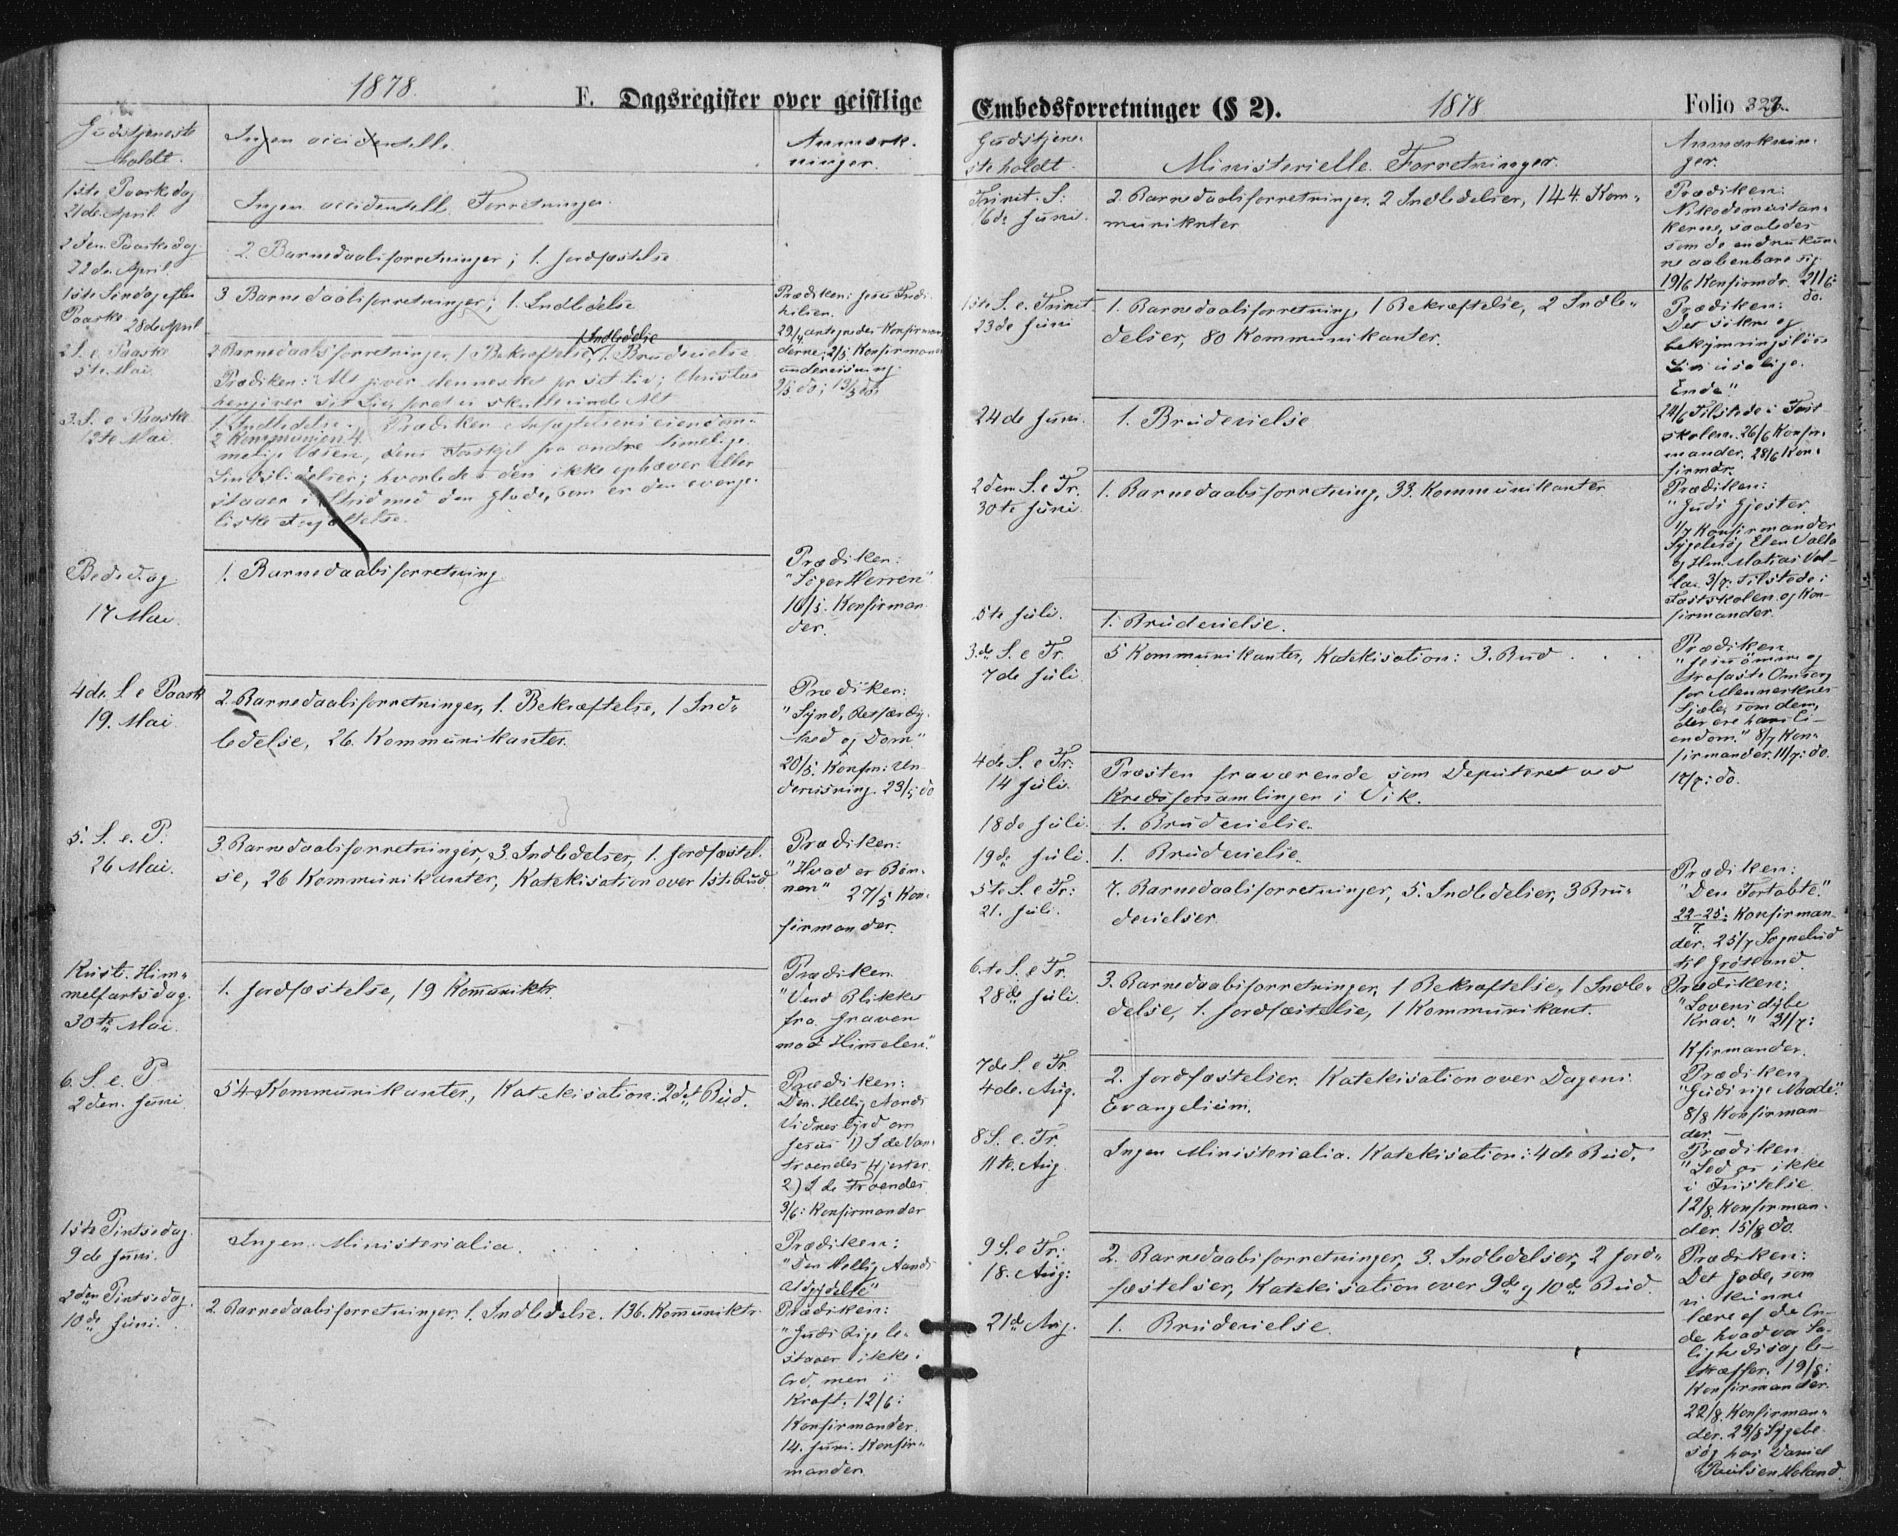 1878.
F. Dagsregister over geistlige
Gudstjeneste
holdt.
Ingen accidentelle.
Anmærk-
ninger.
1ste Paaskedag
21de April
Ingen accidentelle Forretninger.
2den Paaskedag
22de April
2. Barnedaabsforretninger; 1. Jordfæstelse
1ste Søndag efter
Paaske 28de April
3 Barnedaabsforretninger; 1. Indledelse
Prædiken: Jesu Fredshilsen.
29/4. antegnedes Konfirman-
derne; 2/5 Konfirmand-
undervisning.
9/5 do; 13/5 do
2 S. e. Paaske
5te Mai.
Indledelse
2 Barnedaabsforretninger, 1 Bekræftelse, 1. Brudevielse.
Prædiken: Alt giver Mennesket for sit Liv; Christus
hengiver sit Liv, for at vi skulle vinde Alt
3. S. e Paaske
12te Mai.
1. Indledelse.
2 Kommunion. Prædiken: Anfægtelsens eiendom-
melige Væsen, dens Forskjel fra andre timelige
Lindslidelser; hvorledes den ikke ophæver eller
staaer i Strid med den Glæde, som er den evange-
liske
Bededag
17 Mai.
1. Barnedaabsforretning
Prædiken:
"Søger Herren"
16/5. Konfirman-
der.
4de S. e Paask
19. Mai.
2. Barnedaabsforretninger, 1. Bekræftelse, 1 Ind-
ledelse, 26. Kommunikanter.
Prædiken:
"Synd, Retfærdig-
hed og Dom."
20/5. Konfm: Un-
dervisning. 23/5: do
5. S. e. P.
26 Mai.
3. Barnedaabsforretninger, 3. Indledelser, 1. Jordfæstel-
se, 26 Kommunikanter, Katekisation over 1ste Bud.
Prædiken:
"Hvad er Bøn-
nen" 27/5 Kon-
firmander.
Kristi Him-
melfartsdag.
30te Mai.
1. Jordfæstelse, 19 Kommuniktr.
Prædiken.
"Vend Blikket
fra Graven
mod Himmelen."
6. S. e. P
2den. Juni
54 Kommunikanter, Katekisation: 2det Bud.
Prædiken:
Den Hellig Aands
Vidnesbyrd om
Jesus 1) I de Van-
troendes Hjerter
2) I de Troendes.
3/6: Konfirmander
1ste Pintsedag.
9de Juni.
Ingen Ministerialia.
Prædiken:
"Den Hellig Aands
2den Pintsedag.
10de Juni.
2 Barnedaabsforretninger. 1. Indledelse. 136. Kommuniktr.
Prædiken:
"Guds Rige be-
staaer ikke i
Ord, men i
Kraft. 12/6:
Konfirmander.
14. Juni. Konfir-
mander.
Embedsforretninger (§ 2).
1878
Folio 323.
Gudstjene-
ste holdt.
Ministerielle Forretninger.
Anmærknin-
ger.
Trinit. S:
16de Juni.
2. Barnedaabsforretninger. 2 Indledelser, 144. Kom-
munikanter
Prædiken:
Nikodemustan-
kerne, saaledes
som de endnu kun-
ne aabenbare sig.
19/6 Konfirmdr. 21/6:
do.
1ste S. e. Trinit.
23de Juni
1. Barnedaabsforretning, 1 Bekræftelse, 2 Indle-
delser, 80 Kommunikanter.
Prædiken:
Det sikre og
bekymringsløse
Livs usalige
Ende"
24de Juni.
1. Brudevielse
24/6 Tilstede i Fast
skolen. 26/6 Konfir-
mander, 28/6 Kon-
firmdr.
2den S. e Tr.
30te Juni.
1. Barnedaabsforretning, 33. Kommunikanter
Prædiken:
"Guds Gjester
1/7 Konfirmander
Sygebesøg Elen Valla
og Hem. Matias Val-
la. 3/7. Tilstede i
Fastskolen og Kon-
firmander.
5te Juli.
1. Brudevielse.
3de S. e Tr.
7de Juli.
5 Kommunikanter, Katekisation: 3. Bud . . .
Prædiken
"Jesu ømme og
trofaste Omsorg
for Menneskenes
Sjæle, som dem,
der ere hans Ei-
endom." 8/7 Kon-
firmander. 11/7: do.
17/7: do.
4de S. e Tr.
14 Juli.
Præsten fraværende som Deputeret ved
Kredsforsamlingen i Vik.
18de Juli.
1. Brudevielse.
19de Juli.
1. Brudevielse.
5te S. e Tr:
21. Juli.
7. Barnedaabsforretninger, 5. Indledelser, 3 Bru-
devielser.
Prædiken:
"Den Fortabte."
22-25: Konfirman-
7.
der. 25/7 Sognebud
til Grøtland.
6te S. e Tr.
28de Juli.
3. Barnedaabsforretninger, 1 Bekræftelse, 1 Indle-
delse, 1. Jordfæstelse, 1 Kommunikant.
Prædiken:
"Lovens dybe
Krav." 31/7:
Kfirmander.
7de S. e Tr.
4de. Aug.
2. Jordfæstelser. Katekisation over Dagens
Evangelium.
Prædiken
"Guds rige Naade".
8/8 Konfirman-
der.
8 S. e. Tr.
11te. Aug.
Ingen Ministerialia. Katekisation: 4de Bud.
Prædiken
"Led os ikke
i Fristelse.
12/8. Konfirman-
der. 15/8 do.
9 S. e Tr.:
18. Aug:
2. Barnedaabsforretninger, 3. Indledelser, 2 Jord-
fæstelser, Katekisation over 9de og 10de Bud.
Prædiken:
Det Gode, som
vi kunne
lære af de On-
de, hvad vor Sa-
lighedssag be-
træffer. 19/8:
Konfirmander.
21de Aug.
1. Brudevielse.
22/8. Konfirman-
der. 29/8 Sygebe-
søg hos Daniel
Paulsen Høland.